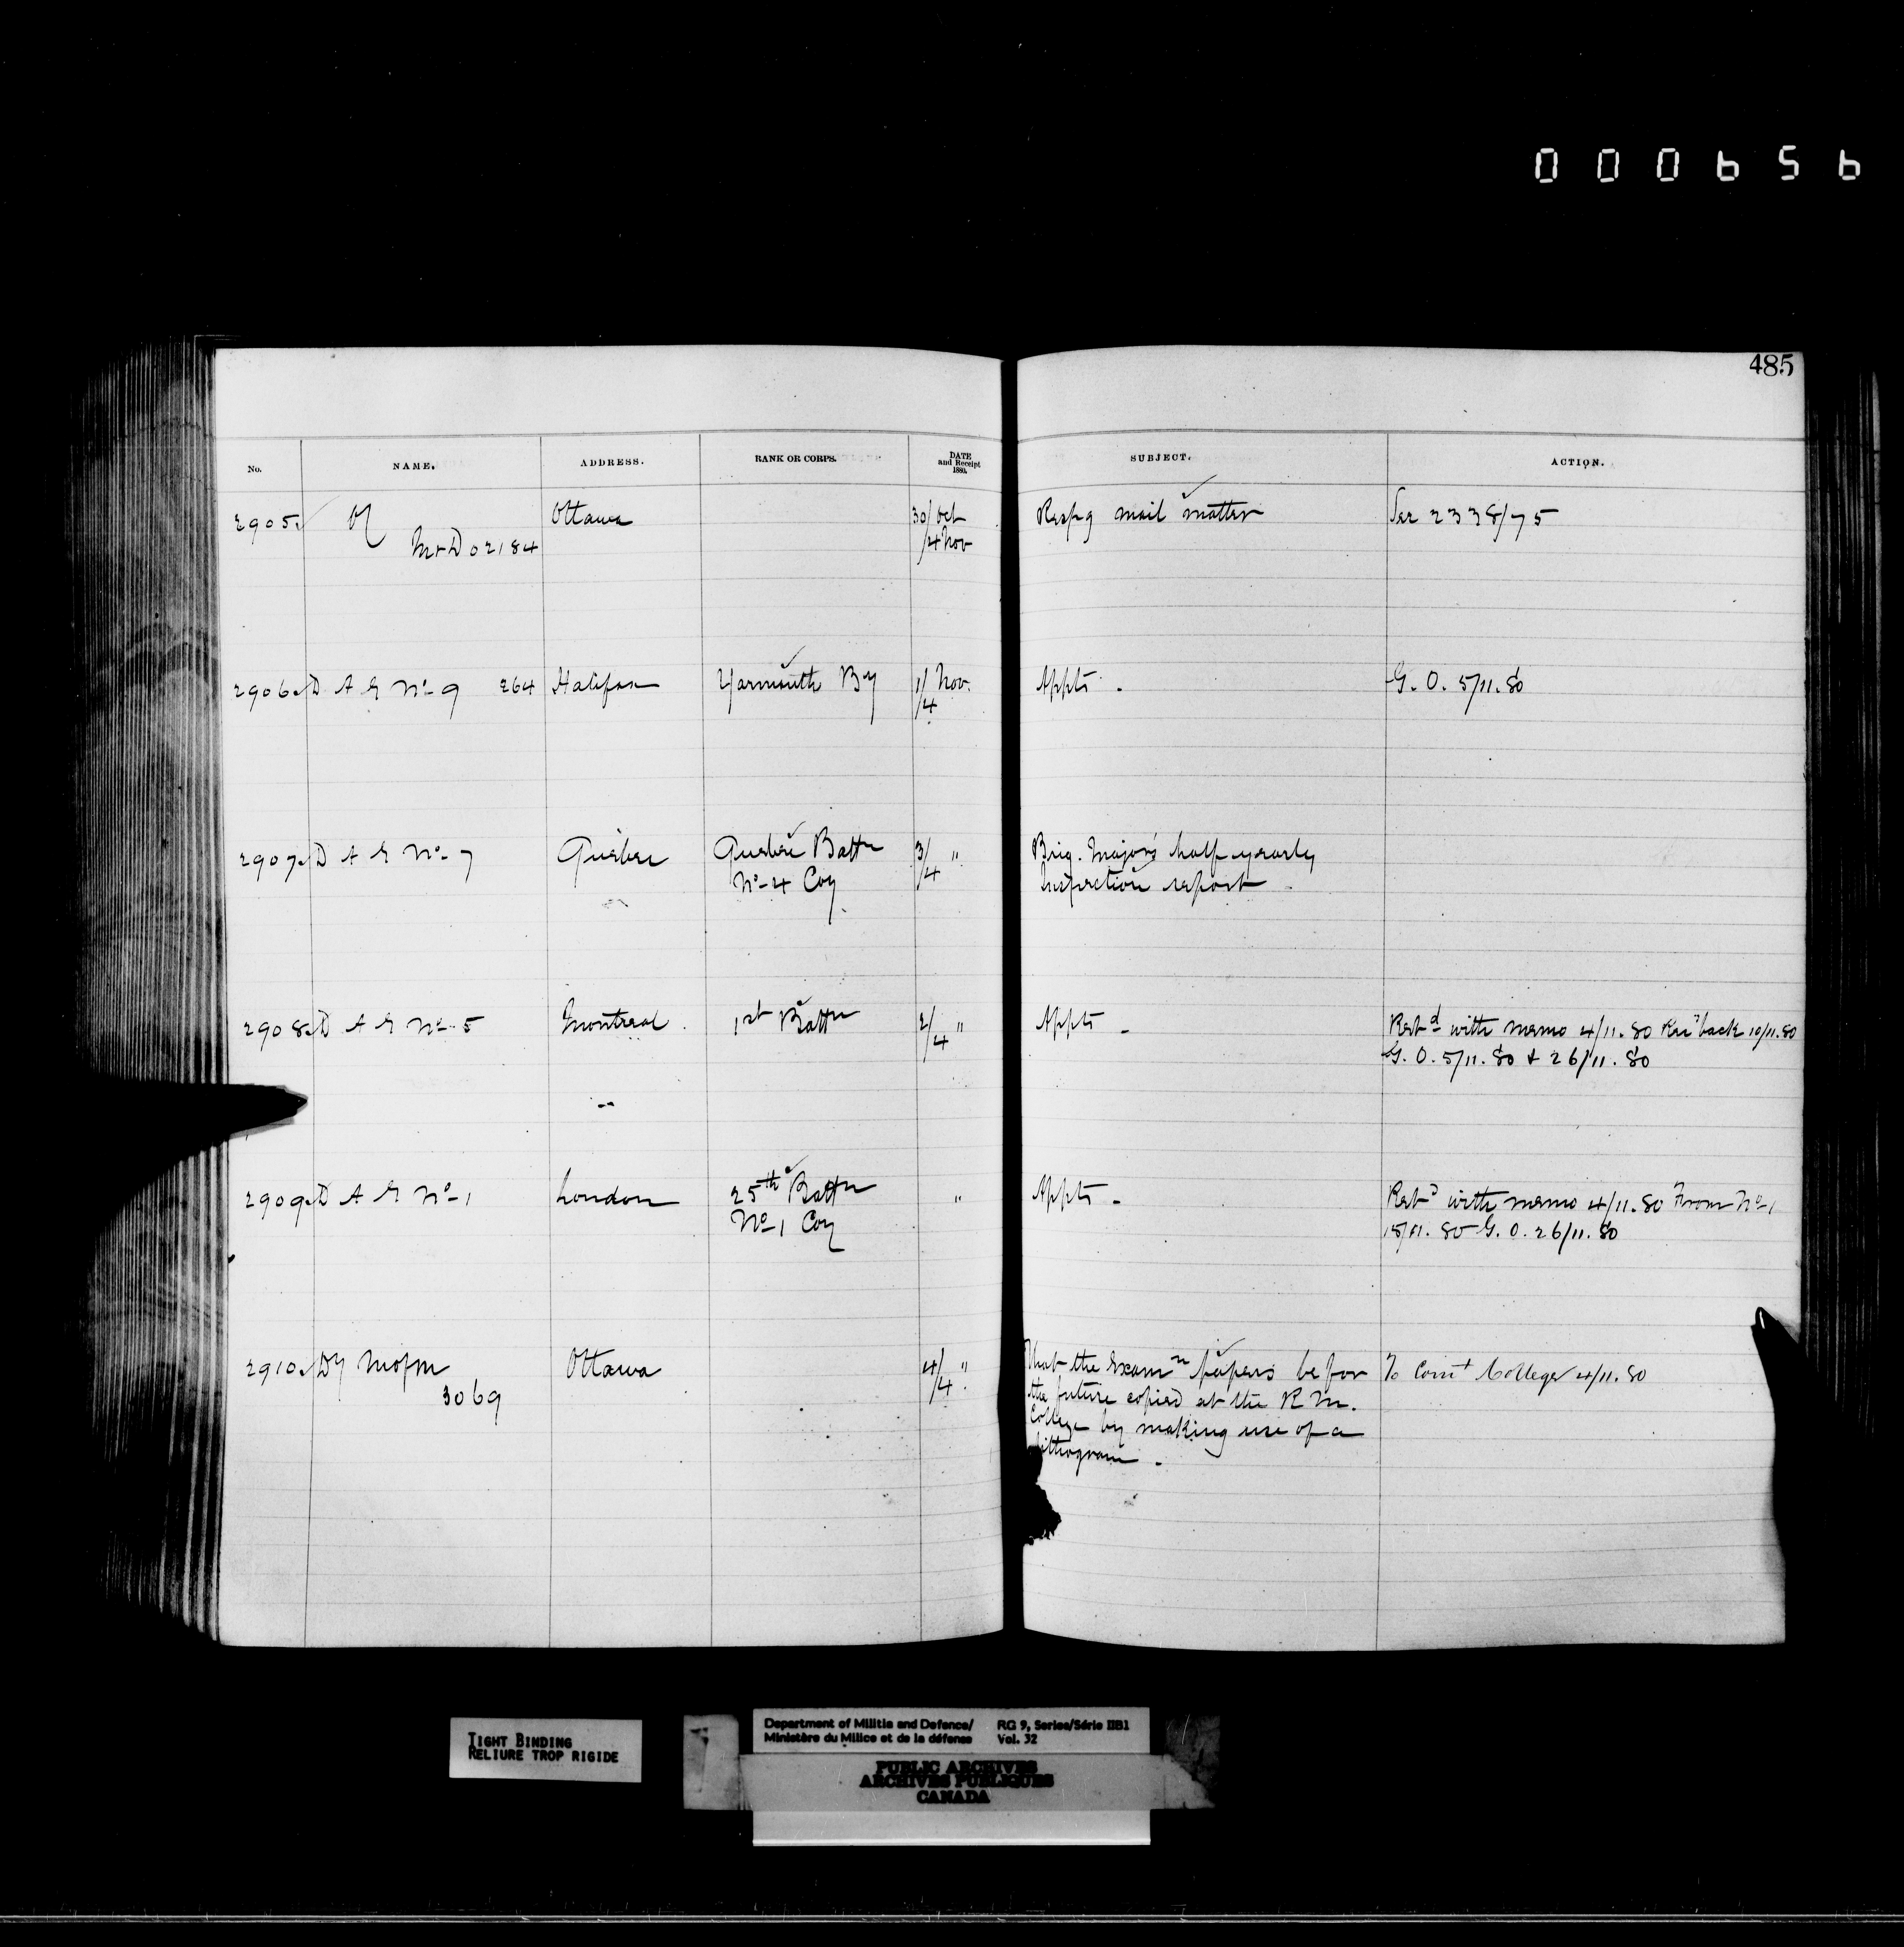 000656
485
No. NAME. ADDRESS. RANK OR CORPS. DATE and Receipt 1880. SUBJECT. ACTION.
2905 Ottawa 30/Oct Respg mail matter See 2338/75
M & D 02184 /4 Nov
2906 D A G No- 9 264 Halifax Yarmouth By 1/ Nov. Appts - G. O. 5/11.80
/4
2907 D A G No- 7 Quebec Quebec Battn 3/4 " Brig. Major's half yearly
No- 4 Coy Inspection report
2908 D A G No- 5 Montreal 1st Battn 2/4 " Appts - Retd with memo 4/11.80 Recd back 10/11.80
G. O. 5/11.80 & 26/11.80
2909 D A G No- 1 London 25th Battn " Appts - Retd with memo 4/11.80 From No- 1
No- 1 Coy 15/11.80 G. O. 26/11.80
2910 Dy Mofm Ottawa 4/4 " That the Examn papers be for To Comt College 4/11.80
3069 the future copied at the R M.
College by making use of a
lithogram -
TIGHT BINDING
RELIURE TROP RIGIDE
Department of Militia and Defence/ RG 9, Series/Série IIB1
Ministère du Milice et de la défense Vol. 32
PUBLIC ARCHIVES
ARCHIVES PUBLIQUES
CANADA